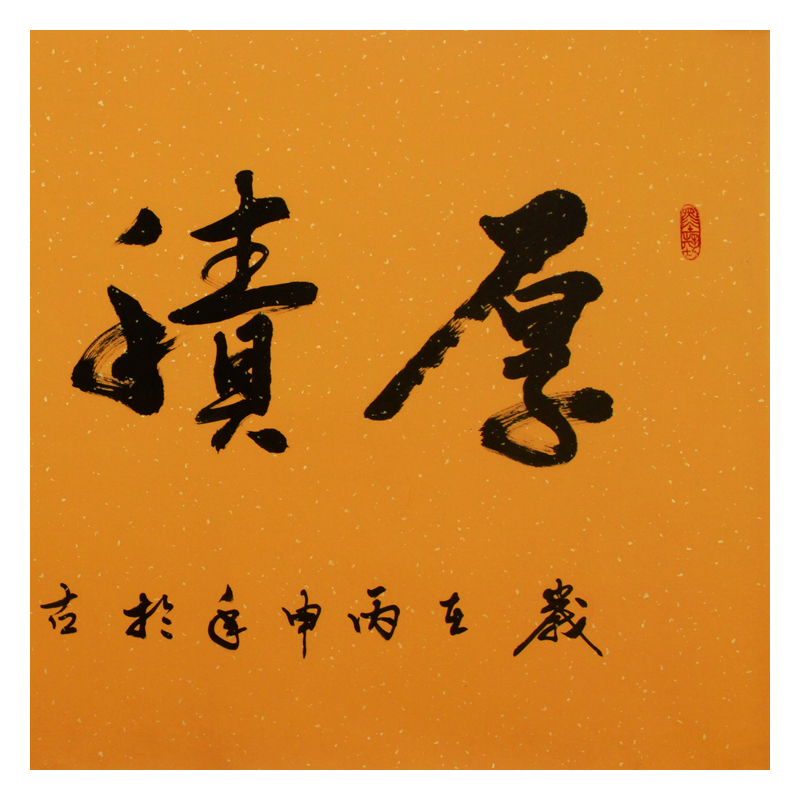 厚積
歲在丙申年於古